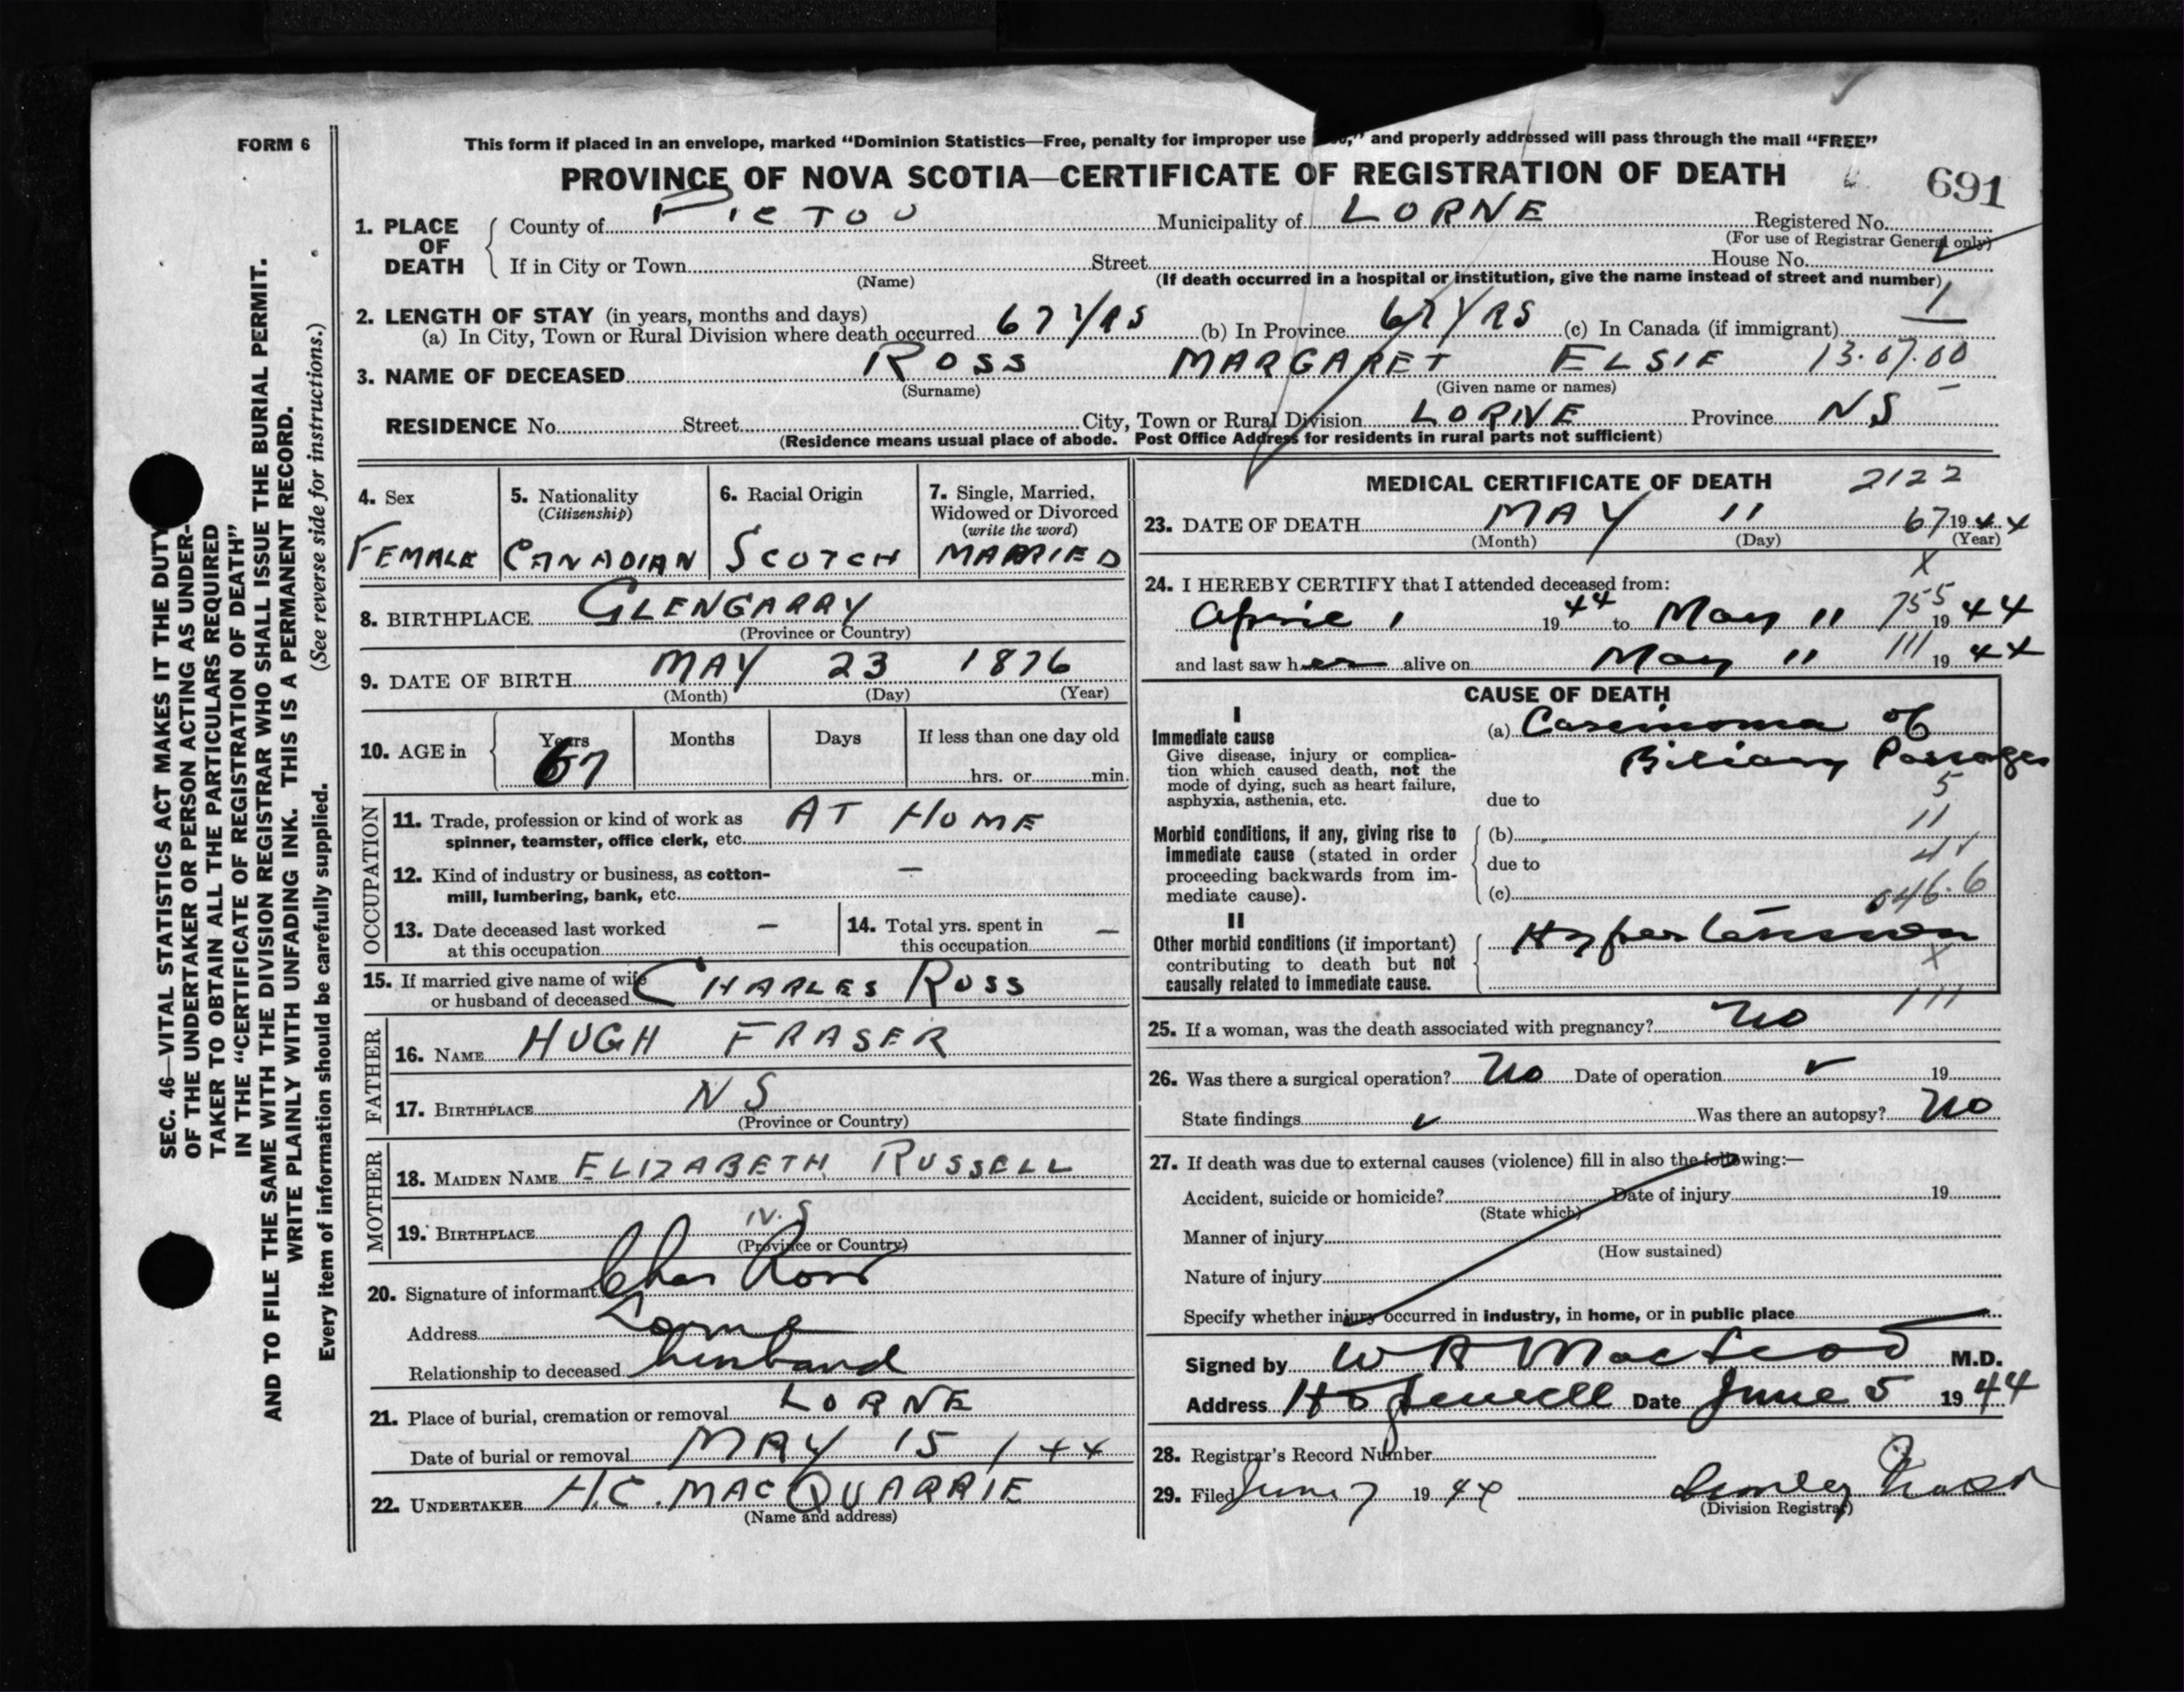 FORM 6
This form if placed in an envelope, marked "Dominion Statistics—Free, penalty for improper use and properly addressed will pass through the mail "FREE"
PROVINCE OF NOVA SCOTIA—CERTIFICATE OF REGISTRATION OF DEATH 691
SEC. 46—VITAL STATISTICS ACT MAKES IT THE DUTY
OF THE UNDERTAKER OR PERSON ACTING AS UNDER-
TAKER TO OBTAIN ALL THE PARTICULARS REQUIRED
IN THE "CERTIFICATE OF REGISTRATION OF DEATH"
AND TO FILE THE SAME WITH THE DIVISION REGISTRAR WHO SHALL ISSUE THE BURIAL PERMIT.
WRITE PLAINLY WITH UNFADING INK. THIS IS A PERMANENT RECORD.
Every item of information should be carefully supplied. (See reverse side for instructions.)
1. PLACE OF DEATH County of PICTOU Municipality of LORNE Registered No.
(For use of Registrar General only)
If in City or Town Street House No.
(Name) (If death occurred in a hospital or institution, give the name instead of street and number)
2. LENGTH OF STAY (in years, months and days)
(a) In City, Town or Rural Division where death occurred 67 YRS (b) In Province 67 YRS (c) In Canada (if immigrant) 1
3. NAME OF DECEASED ROSS MARGARET ELSIE 13.07.00
(Surname) (Given name or names)
RESIDENCE No. Street City, Town or Rural Division LORNE Province NS
(Residence means usual place of abode. Post Office Address for residents in rural parts not sufficient)
4. Sex FEMALE
5. Nationality (Citizenship) CANADIAN
6. Racial Origin SCOTCH
7. Single, Married, Widowed or Divorced (write the word) MARRIED
8. BIRTHPLACE GLENGARRY
(Province or Country)
9. DATE OF BIRTH MAY 23 1876
(Month) (Day) (Year)
10. AGE in Years 67 Months Days If less than one day old
hrs. or min.
OCCUPATION
11. Trade, profession or kind of work as AT HOME
spinner, teamster, office clerk, etc.
12. Kind of industry or business, as cotton- —
mill, lumbering, bank, etc.
13. Date deceased last worked — 14. Total yrs. spent in —
at this occupation this occupation
15. If married give name of wife CHARLES ROSS
or husband of deceased
FATHER
16. NAME HUGH FRASER
17. BIRTHPLACE NS
(Province or Country)
MOTHER
18. MAIDEN NAME ELIZABETH RUSSELL
19. BIRTHPLACE N.S
(Province or Country)
20. Signature of informant Chas Ross
Address Lorne
Relationship to deceased husband
21. Place of burial, cremation or removal LORNE
Date of burial or removal MAY 15 / 44
22. UNDERTAKER H.C. MACQUARRIE
(Name and address)
MEDICAL CERTIFICATE OF DEATH 2122
23. DATE OF DEATH MAY 11 67 1944
(Month) (Day) (Year)
X
24. I HEREBY CERTIFY that I attended deceased from:
April 1 1944 to May 11 755 1944
and last saw her alive on May 11 111 1944
CAUSE OF DEATH
I
Immediate cause
Give disease, injury or complica-
tion which caused death, not the
mode of dying, such as heart failure,
asphyxia, asthenia, etc.
(a) Carcinoma of
Biliary Passages
5
due to
Morbid conditions, if any, giving rise to
immediate cause (stated in order
proceeding backwards from im-
mediate cause).
(b) 11
due to 44
(c) 046.6
II
Other morbid conditions (if important)
contributing to death but not
causally related to immediate cause.
Hypertension
X
111
25. If a woman, was the death associated with pregnancy? No
26. Was there a surgical operation? No Date of operation 19
State findings Was there an autopsy? No
27. If death was due to external causes (violence) fill in also the following:—
Accident, suicide or homicide? Date of injury 19
(State which)
Manner of injury
(How sustained)
Nature of injury
Specify whether injury occurred in industry, in home, or in public place
Signed by W A MacLeod M.D.
Address Hopewell Date June 5 1944
28. Registrar's Record Number
29. Filed June 7 1944
(Division Registrar)